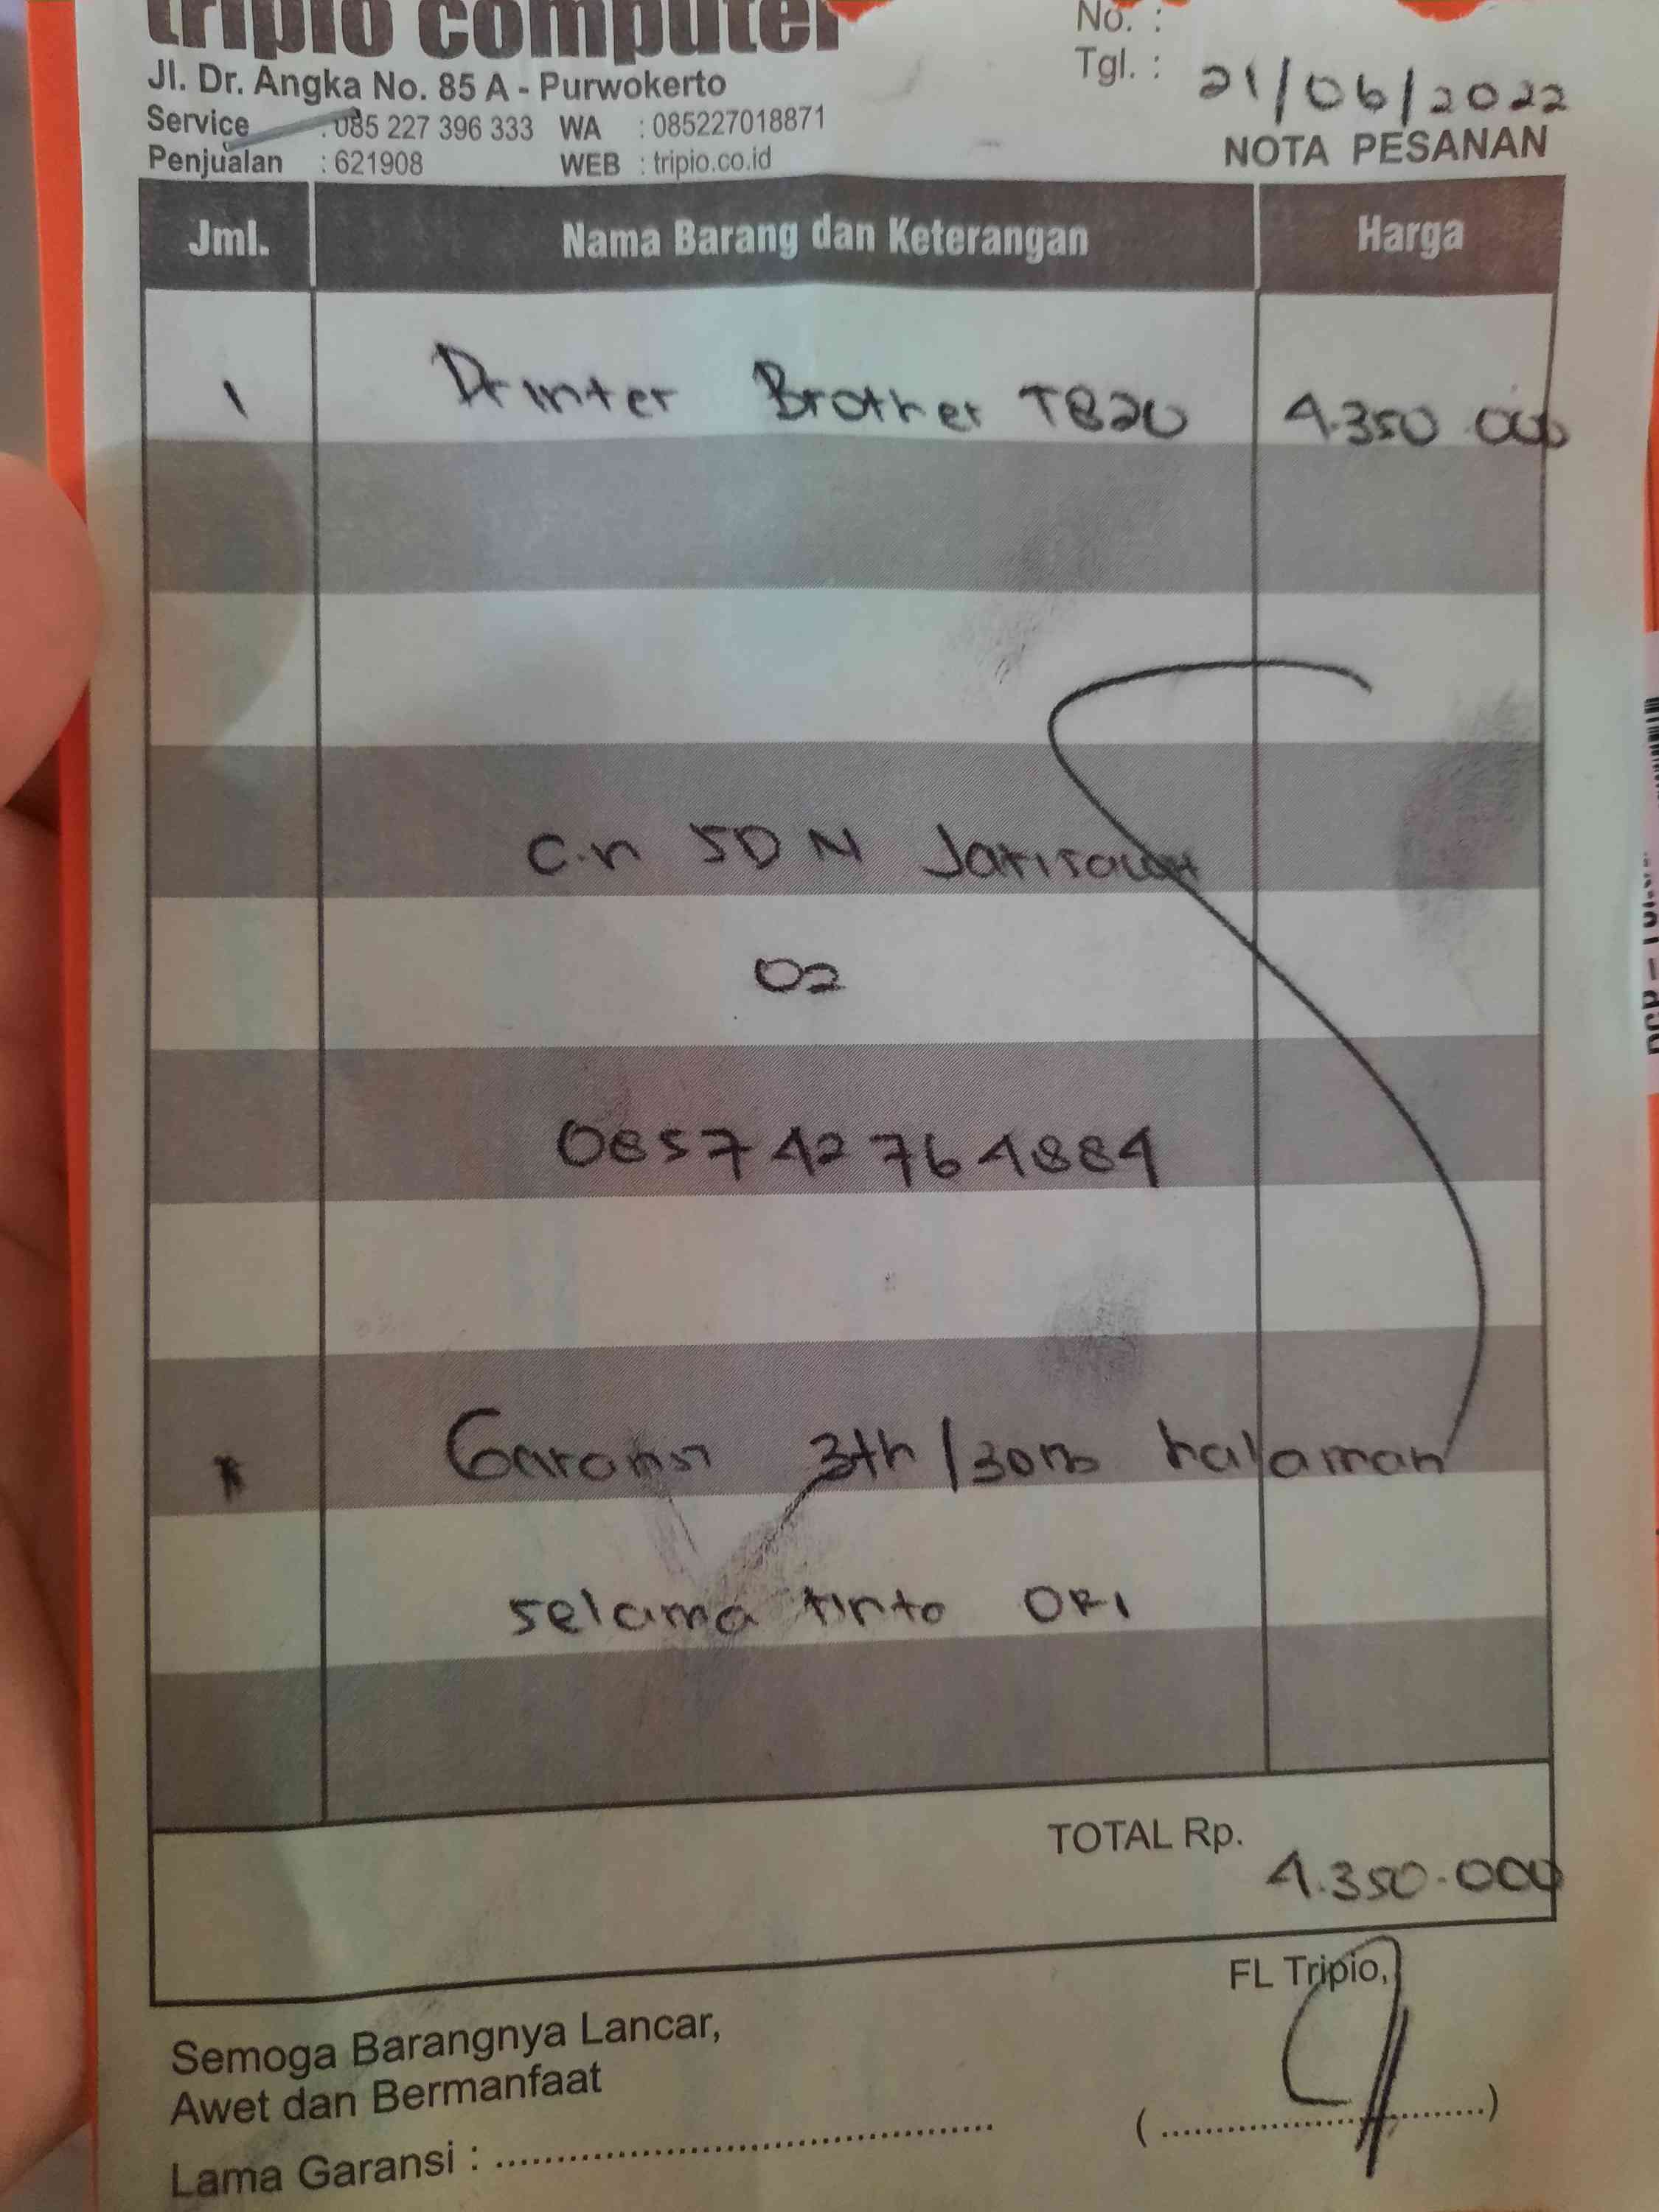 tripio computer
Jl. Dr. Angka No. 85 A - Purwokerto
Service : 085 227 396 333 WA : 085227018871
Penjualan : 621908 WEB : tripio.co.id
No. :
Tgl. : 21/06/2022
NOTA PESANAN
Jml. Nama Barang dan Keterangan Harga
1 Printer Brother T820 4.350.000
C.n SDN Jatisawit
02
085742764884
* Garansi 3th/30rb halaman
selama tinta ORI
TOTAL Rp. 4.350.000
FL Tripio,
Semoga Barangnya Lancar,
Awet dan Bermanfaat
Lama Garansi : ........................................ (............................)